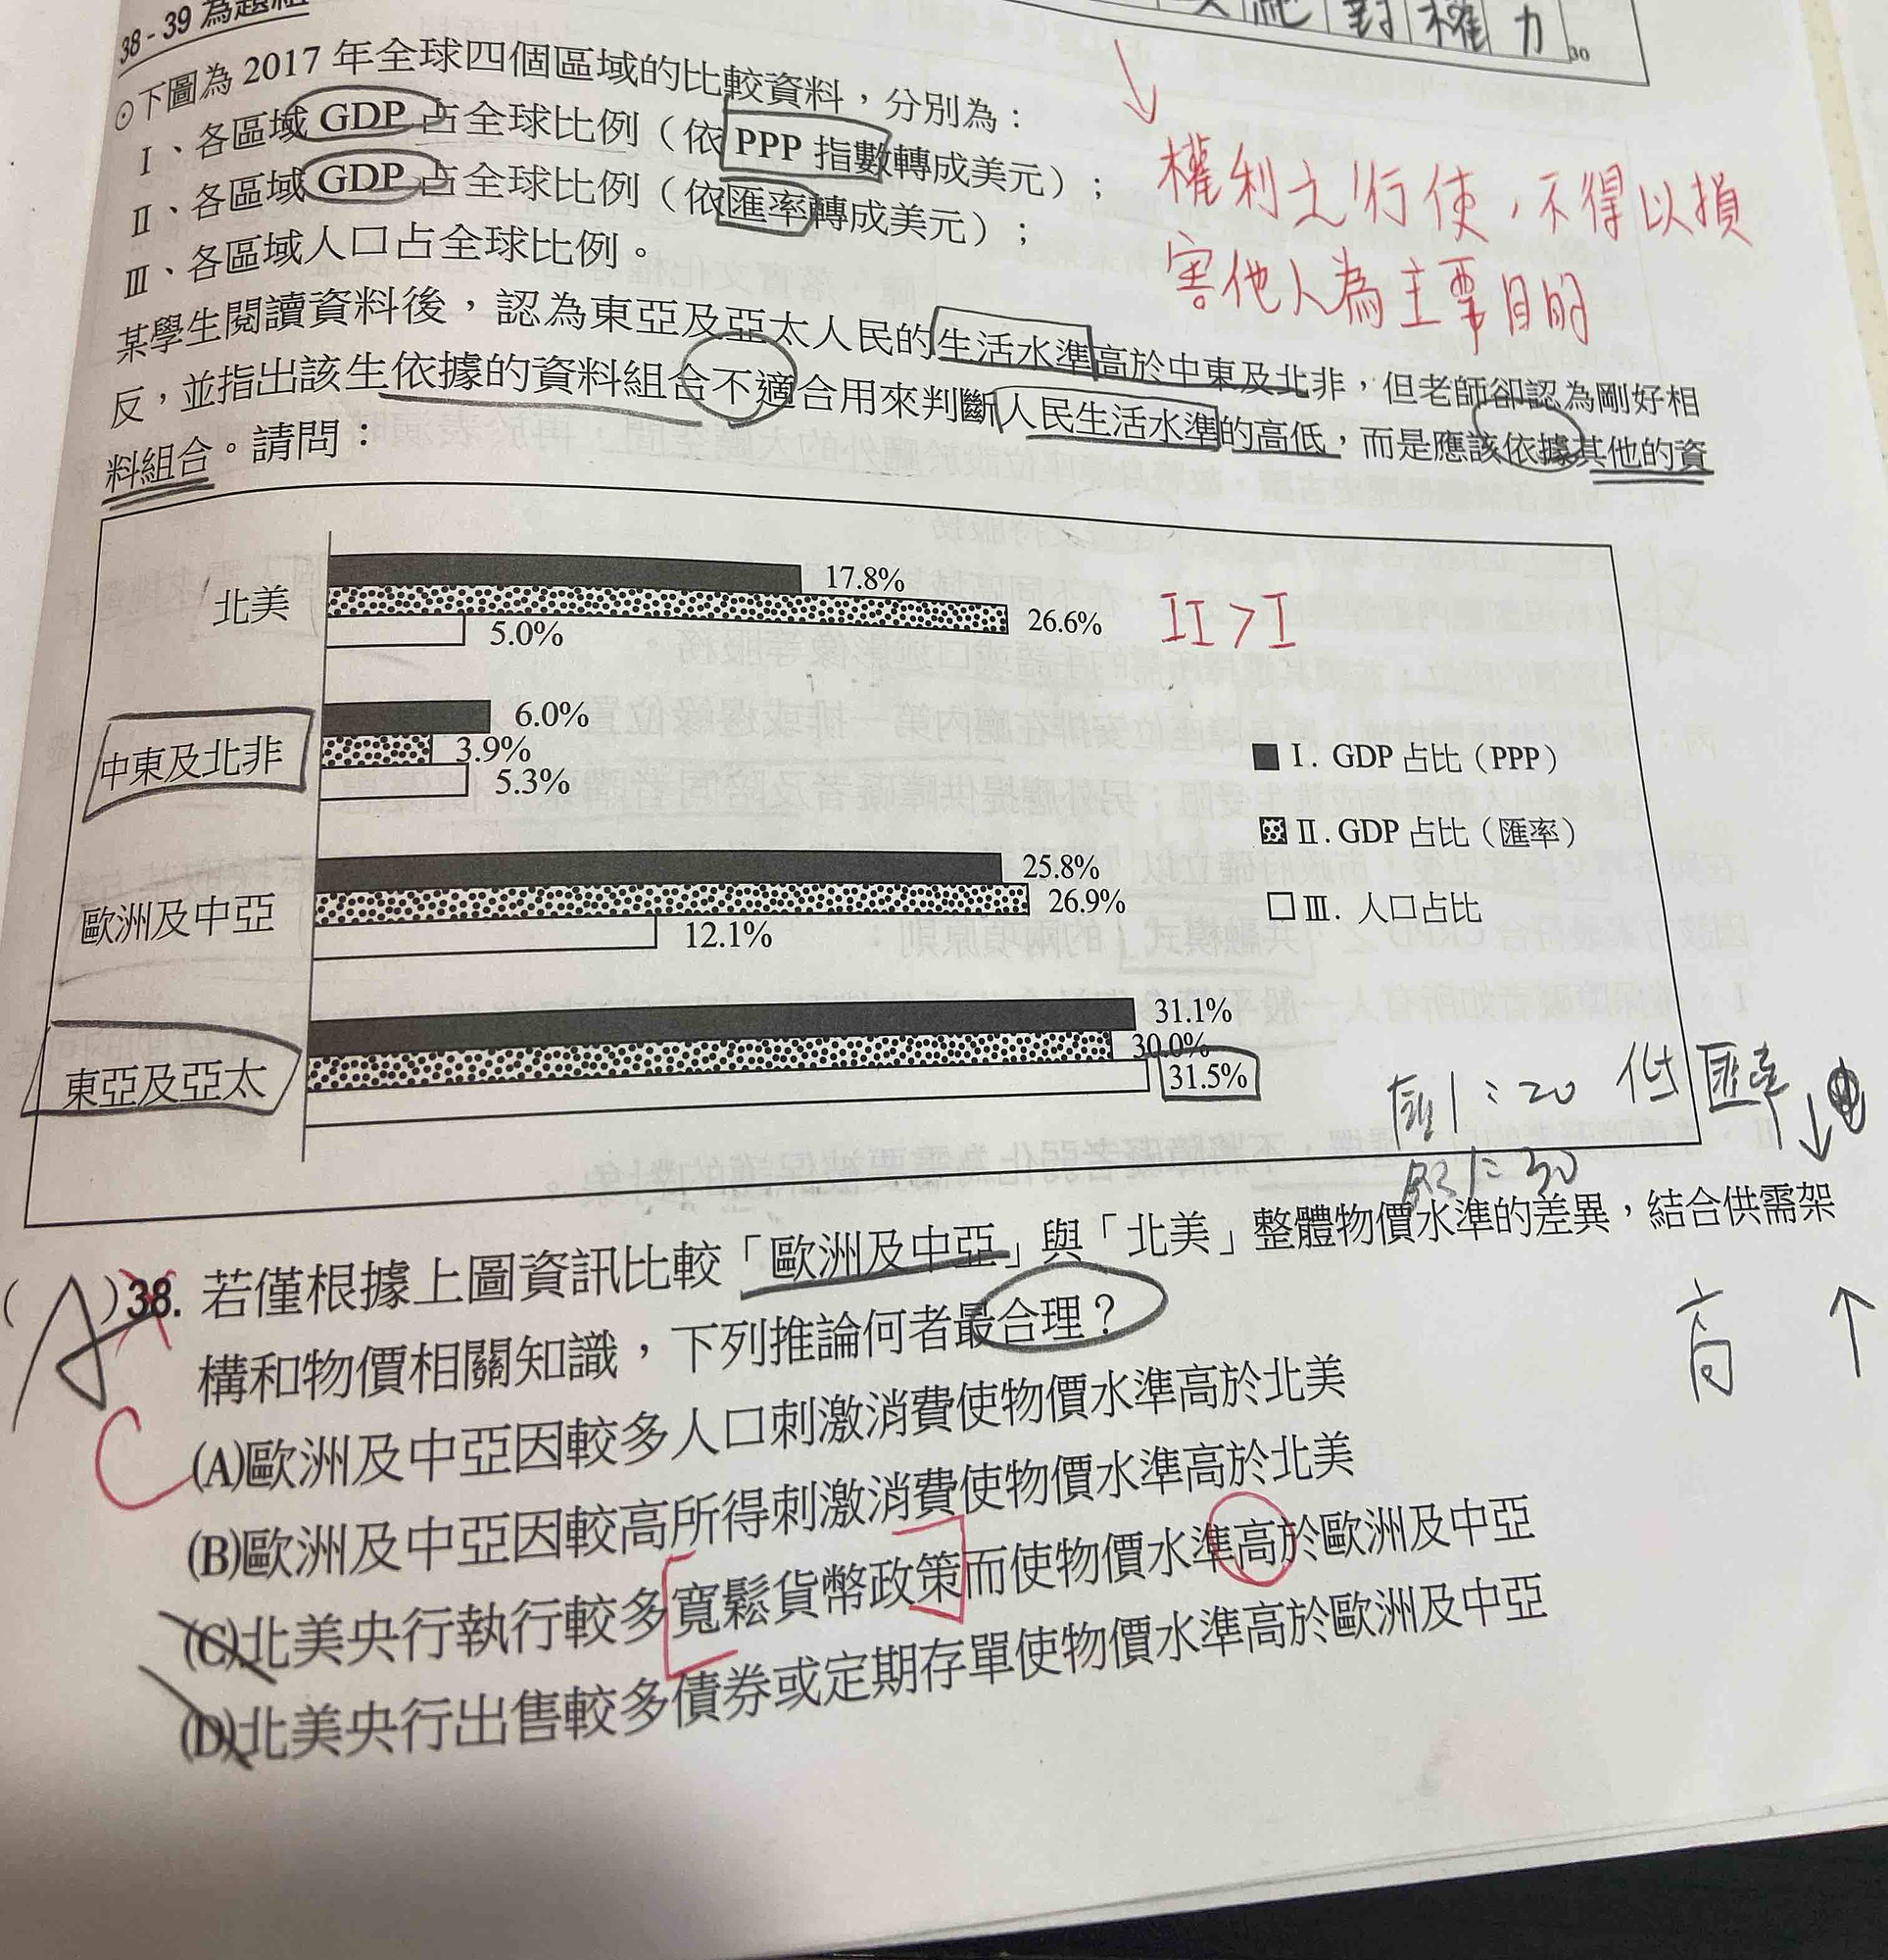 38 - 39 為題組
對權力
30
⊙下圖為 2017 年全球四個區域的比較資料，分別為：
Ⅰ、各區域 GDP 占全球比例（依 PPP 指數轉成美元）；
Ⅱ、各區域 GDP 占全球比例（依匯率轉成美元）；
Ⅲ、各區域人口占全球比例。
權利之行使，不得以損
害他人為主要目的
某學生閱讀資料後，認為東亞及亞太人民的生活水準高於中東及北非，但老師卻認為剛好相
反，並指出該生依據的資料組合不適合用來判斷人民生活水準的高低，而是應該依據其他的資
料組合。請問：
北美
17.8%
26.6%
5.0%
II > I
中東及北非
6.0%
3.9%
5.3%
歐洲及中亞
25.8%
26.9%
12.1%
東亞及亞太
31.1%
30.0%
31.5%
Ⅰ. GDP 占比（PPP）
Ⅱ. GDP 占比（匯率）
Ⅲ. 人口占比
1:20 低 匯率↓
1:30
高 ↑
( A )38. 若僅根據上圖資訊比較「歐洲及中亞」與「北美」整體物價水準的差異，結合供需架
構和物價相關知識，下列推論何者最合理？
C
(A)歐洲及中亞因較多人口刺激消費使物價水準高於北美
(B)歐洲及中亞因較高所得刺激消費使物價水準高於北美
(C)北美央行執行較多寬鬆貨幣政策而使物價水準高於歐洲及中亞
(D)北美央行出售較多債券或定期存單使物價水準高於歐洲及中亞